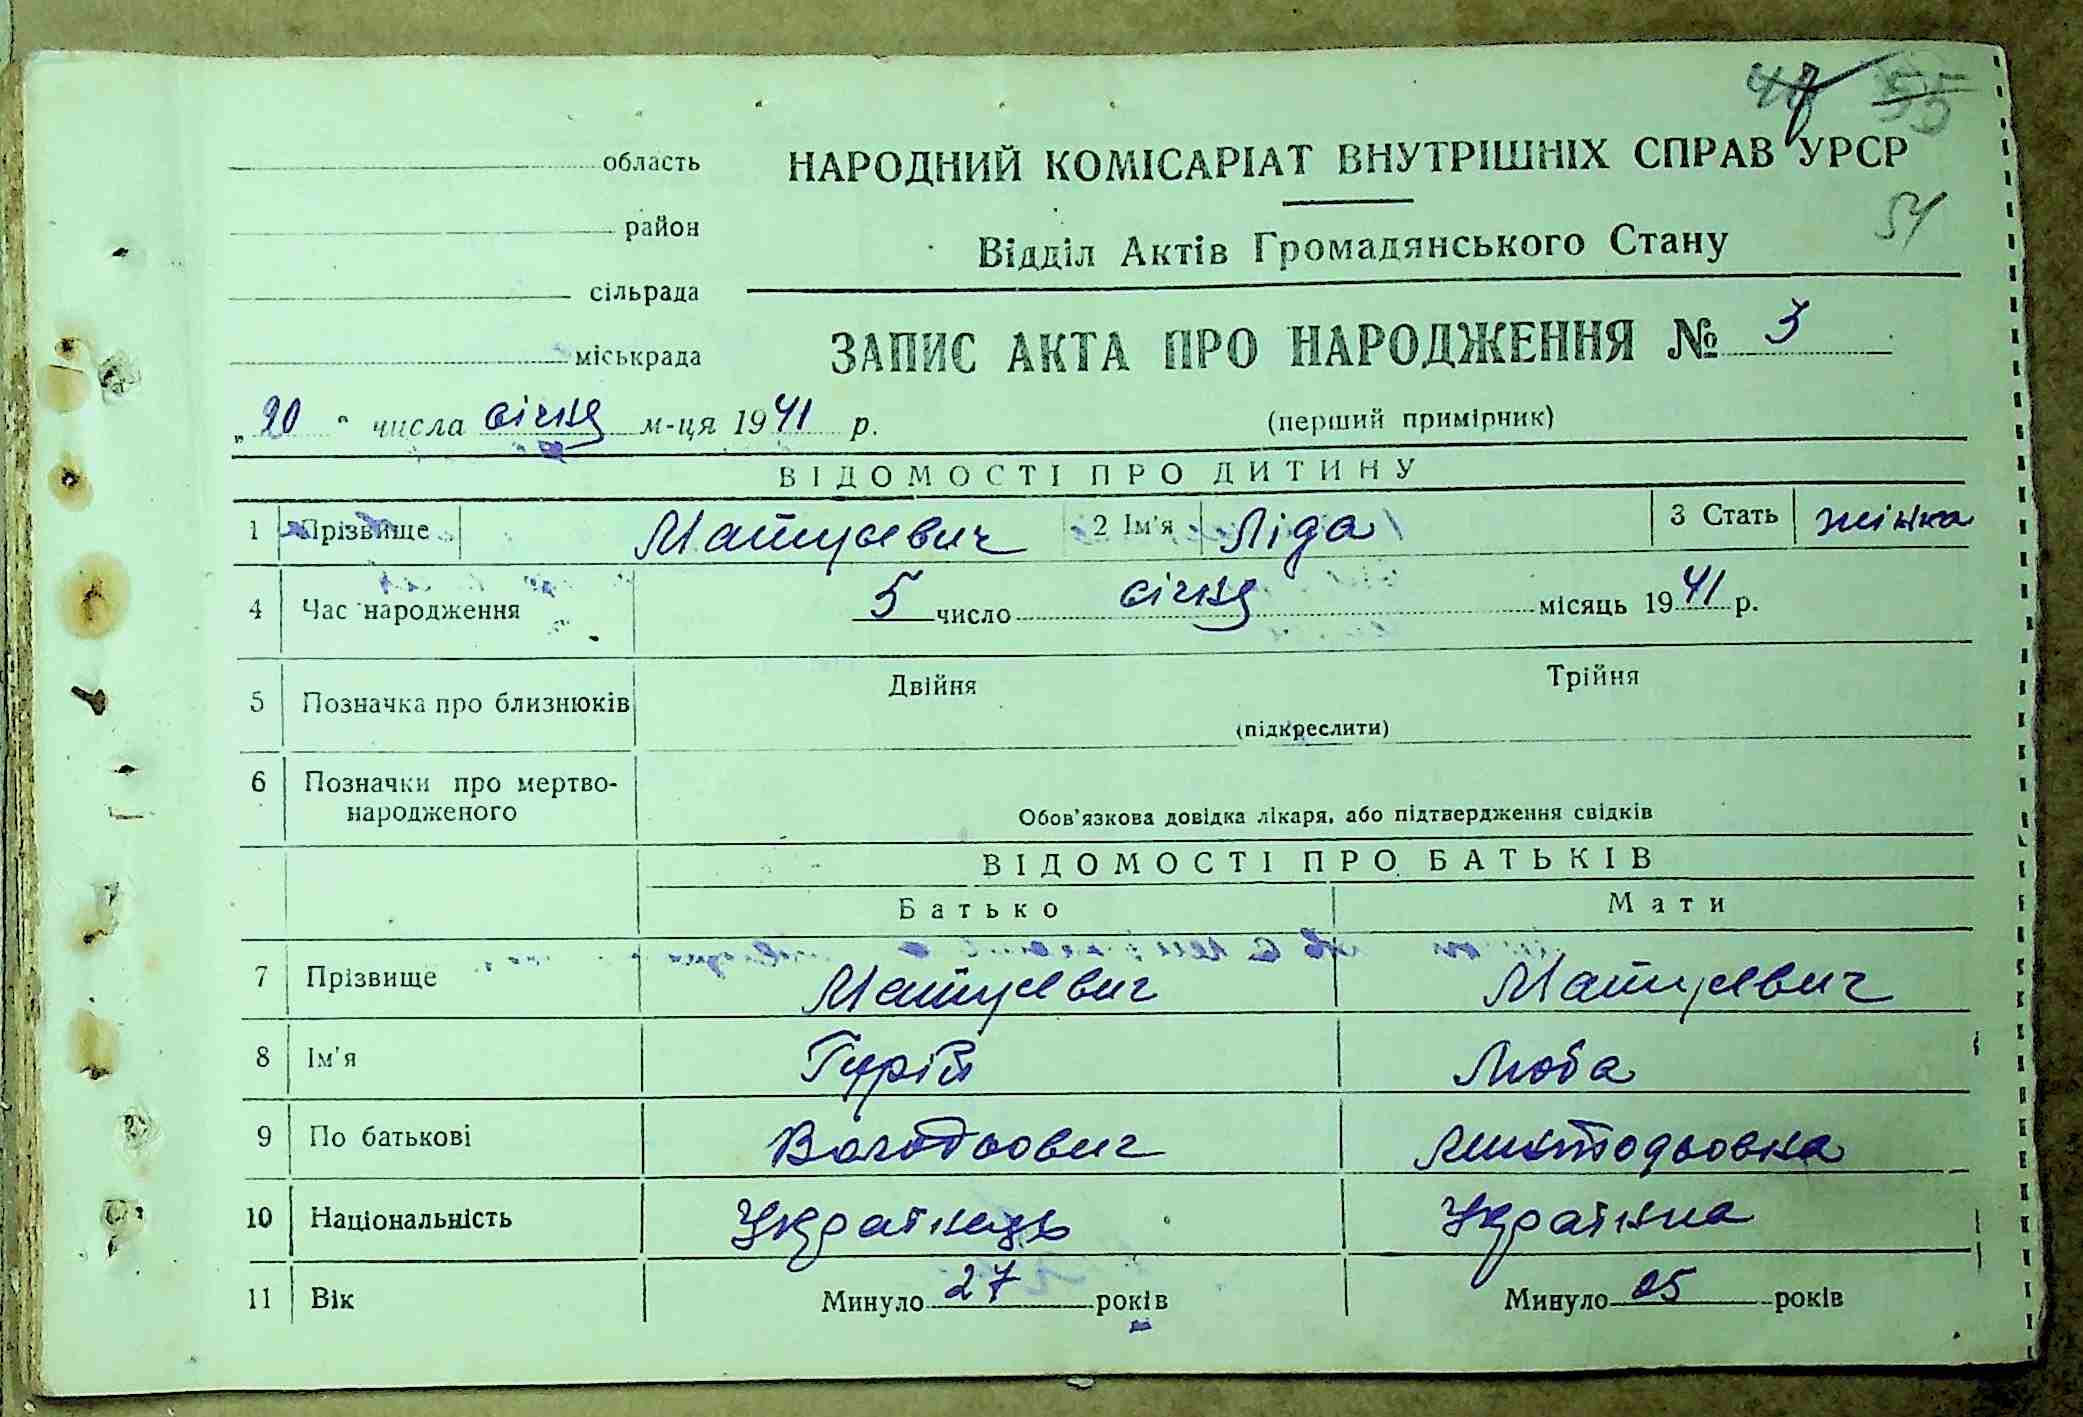 47 55
область
НАРОДНИЙ КОМІСАРІАТ ВНУТРІШНІХ СПРАВ УРСР
район
54
Відділ Актів Громадянського Стану
сільрада
ЗАПИС АКТА ПРО НАРОДЖЕННЯ № 3
міськрада
„20“ числа січня м-ця 1941 р.
(перший примірник)
ВІДОМОСТІ ПРО ДИТИНУ
1 Прізвище Матусевич 2 Ім'я Ліда 3 Стать жінка
4 Час народження 5 число січня місяць 1941 р.
5 Позначка про близнюків Двійня Трійня
(підкреслити)
6 Позначки про мертво-
народженого
Обов'язкова довідка лікаря, або підтвердження свідків
ВІДОМОСТІ ПРО БАТЬКІВ
Батько Мати
7 Прізвище Матусевич Матусевич
8 Ім'я Гурій Люба
9 По батькові
10 Національність Українець Українка
11 Вік Минуло 27 років Минуло 25 років